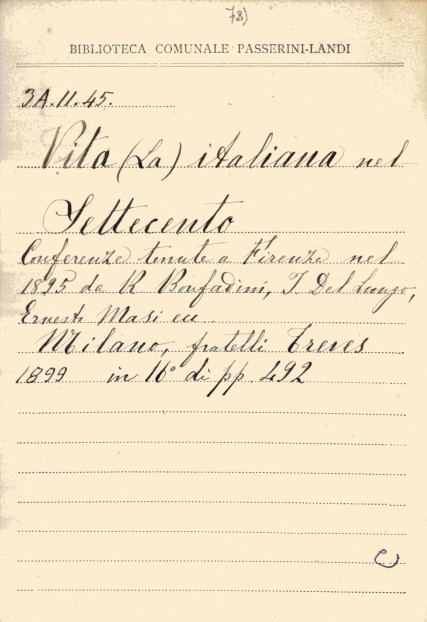 78)
BIBLIOTECA COMUNALE PASSERINI-LANDI
3A.11.45.
Vita (La) italiana nel
Settecento
Conferenze tenute a Firenze nel
1895 da R Bonfadini, I Del Lungo,
Ernesto Masi ecc
Milano, fratelli Treves
1899 in 16° di pp. 492